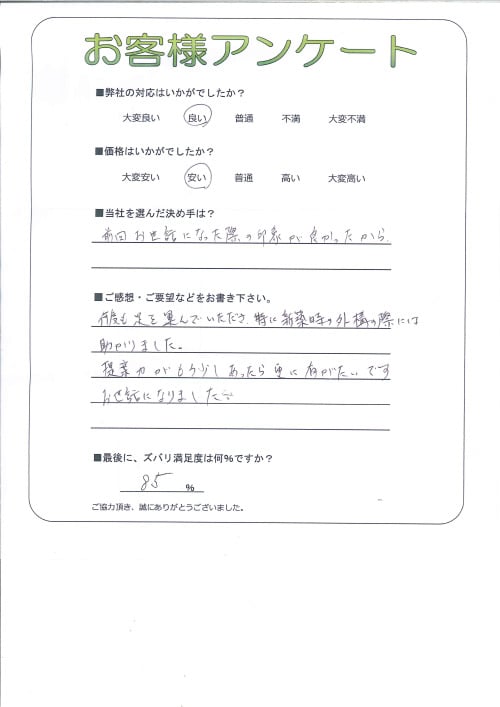 お客様アンケート
■弊社の対応はいかがでしたか？
大変良い 良い 普通 不満 大変不満
■価格はいかがでしたか？
大変安い 安い 普通 高い 大変高い
■当社を選んだ決め手は？
前回お世話になった際の印象が良かったから.
■ご感想・ご要望などをお書き下さい。
何度も足を運んでいただき、特に新築時の外構の際には
助かりました。
提案力がもう少しあったら更に有がたいです
お世話になりました
■最後に、ズバリ満足度は何％ですか？
85 ％
ご協力頂き、誠にありがとうございました。